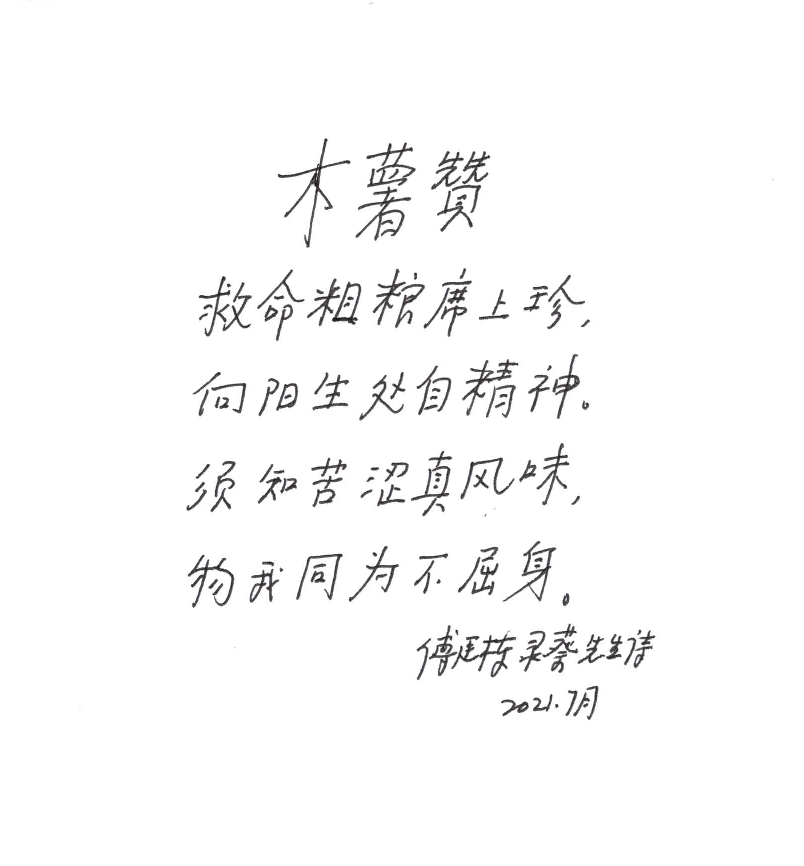 木薯赞
救命粗粮席上珍，
向阳生处自精神。
须知苦涩真风味，
物我同为不屈身。
傅廷栋录蔡先生诗
2021.7月